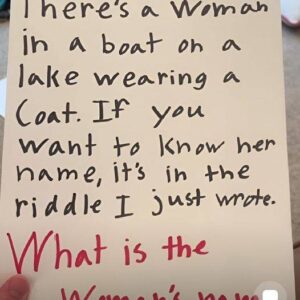 There's a Woman
in a boat on a
lake wearing a
Coat. If you
want to know her
name, it's in the
riddle I just wrote.
What is the
Woman's name